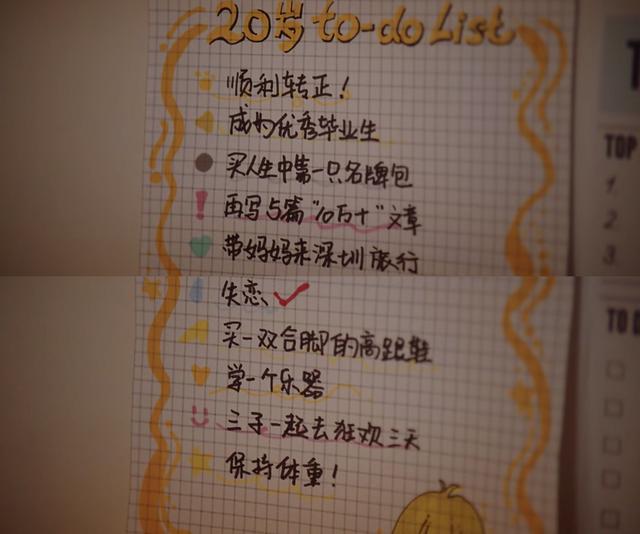 20岁 to-do List
顺利转正！
成为优秀毕业生
买人生中第一只名牌包
再写5篇“10万+”文章
带妈妈来深圳旅行
失恋
买一双合脚的高跟鞋
学一个乐器
三子一起去狂欢三天
保持体重！
TOP
1.
2
3.